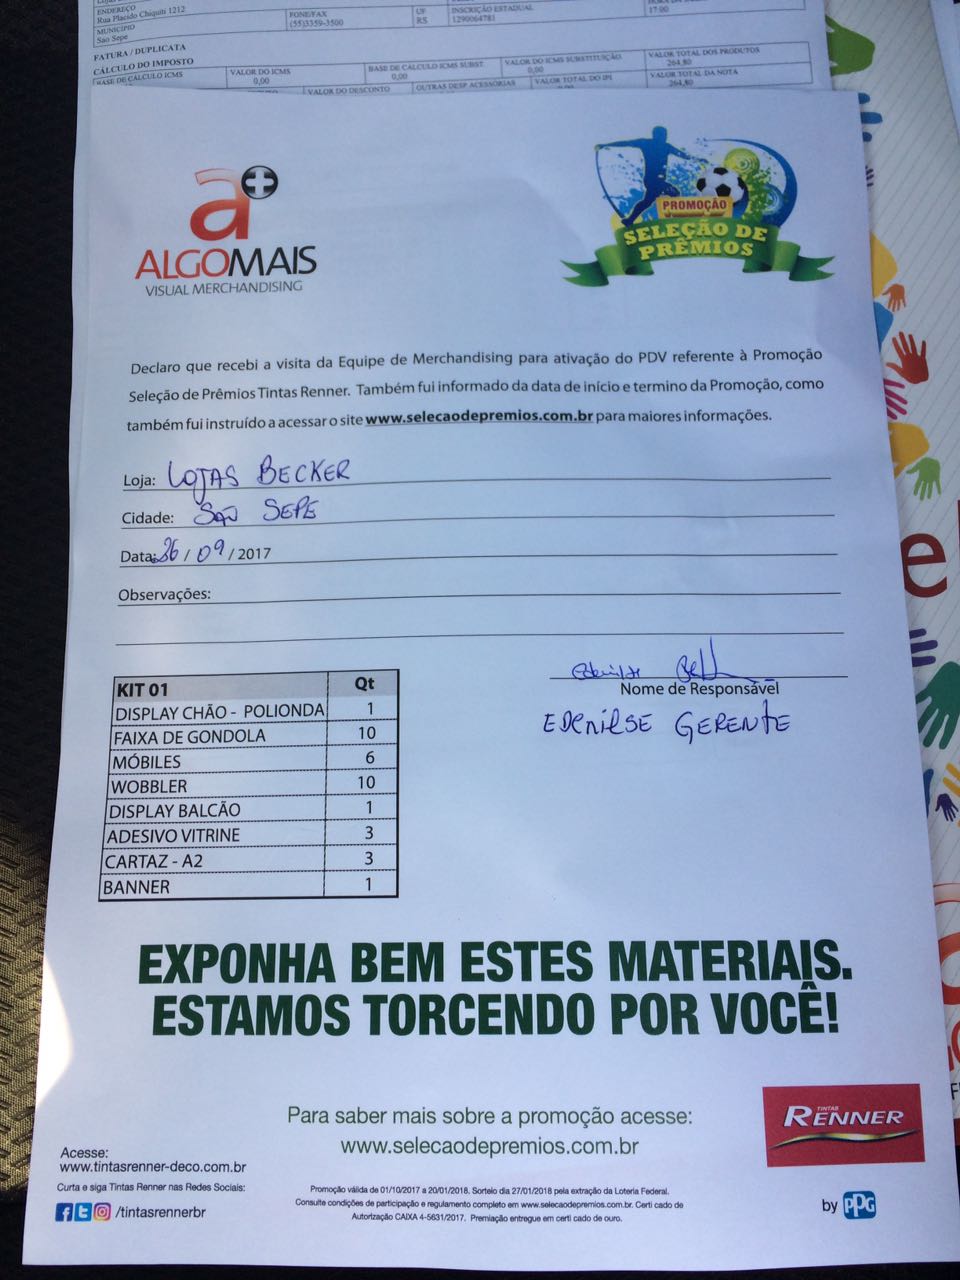 ENDEREÇO
Rua Placido Chiquiti 1212
MUNICÍPIO
Sao Sepe
FONE/FAX
(55)3359-3500
UF
RS
INSCRIÇÃO ESTADUAL
1290064781
17:00
FATURA / DUPLICATA
CÁLCULO DO IMPOSTO
BASE DE CÁLCULO ICMS
VALOR DO ICMS
0,00
BASE DE CÁLCULO ICMS SUBST.
0,00
VALOR DO ICMS SUBSTITUIÇÃO
0,00
VALOR TOTAL DOS PRODUTOS
264,80
VALOR DO DESCONTO
OUTRAS DESP ACESSÓRIAS
VALOR TOTAL DO IPI
VALOR TOTAL DA NOTA
264,80
a+
ALGOMAIS
VISUAL MERCHANDISING
PROMOÇÃO
SELEÇÃO DE
PRÊMIOS
Declaro que recebi a visita da Equipe de Merchandising para ativação do PDV referente à Promoção
Seleção de Prêmios Tintas Renner. Também fui informado da data de início e termino da Promoção, como
também fui instruído a acessar o site www.selecaodepremios.com.br para maiores informações.
Loja: LOJAS BECKER
Cidade: SÃO SEPE
Data: 26 / 09 / 2017
Observações:
Nome de Responsável
EDENILSE GERENTE
KIT 01 Qt
DISPLAY CHÃO - POLIONDA 1
FAIXA DE GONDOLA 10
MÓBILES 6
WOBBLER 10
DISPLAY BALCÃO 1
ADESIVO VITRINE 3
CARTAZ - A2 3
BANNER 1
EXPONHA BEM ESTES MATERIAIS.
ESTAMOS TORCENDO POR VOCÊ!
Para saber mais sobre a promoção acesse:
www.selecaodepremios.com.br
TINTAS
RENNER
Acesse:
www.tintasrenner-deco.com.br
Curta e siga Tintas Renner nas Redes Sociais:
/tintasrennerbr
Promoção válida de 01/10/2017 a 20/01/2018. Sorteio dia 27/01/2018 pela extração da Loteria Federal.
Consulte condições de participação e regulamento completo em www.selecaodepremios.com.br. Certi cado de
Autorização CAIXA 4-5631/2017. Premiação entregue em certi cado de ouro.
by PPG